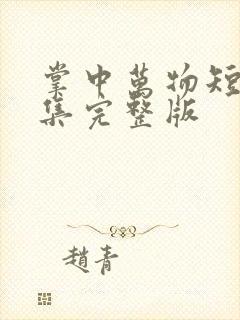 掌中萬物短
集完整版
趙青